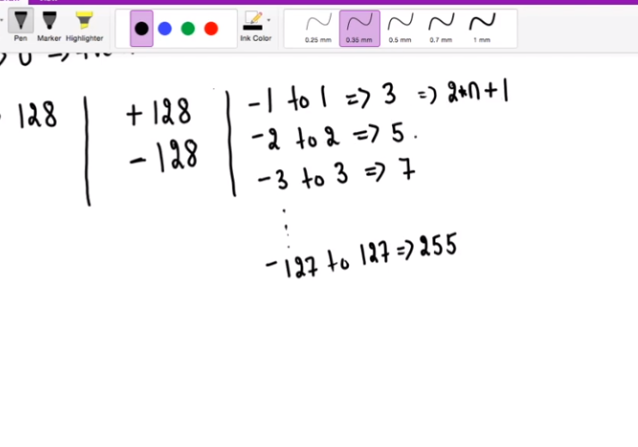 Pen Marker Highlighter Ink Color 0.25 mm 0.35 mm 0.5 mm 0.7 mm 1 mm
128 | + 128 | -1 to 1 => 3 => 2*n+1
- 128 -2 to 2 => 5 .
-3 to 3 => 7
-127 to 127 => 255